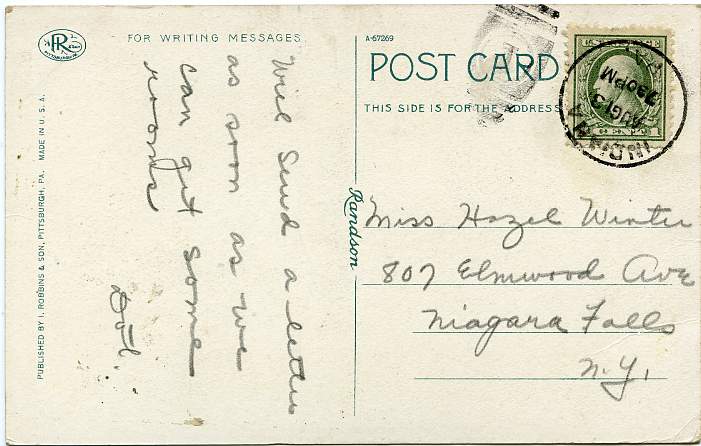 FOR WRITING MESSAGES
A-67269
POST CARD
THIS SIDE IS FOR THE ADDRESS
PITTSBURGH
PUBLISHED BY I. ROBBINS & SON, PITTSBURGH, PA. MADE IN U.S.A.
Randson
Will send a letter
as soon as we
can get some
rooms
Dot.
Miss Hazel Winter
807 Elmwood Ave
Niagara Falls
N.Y.
INDIANA
AUG 13
730PM
PA.